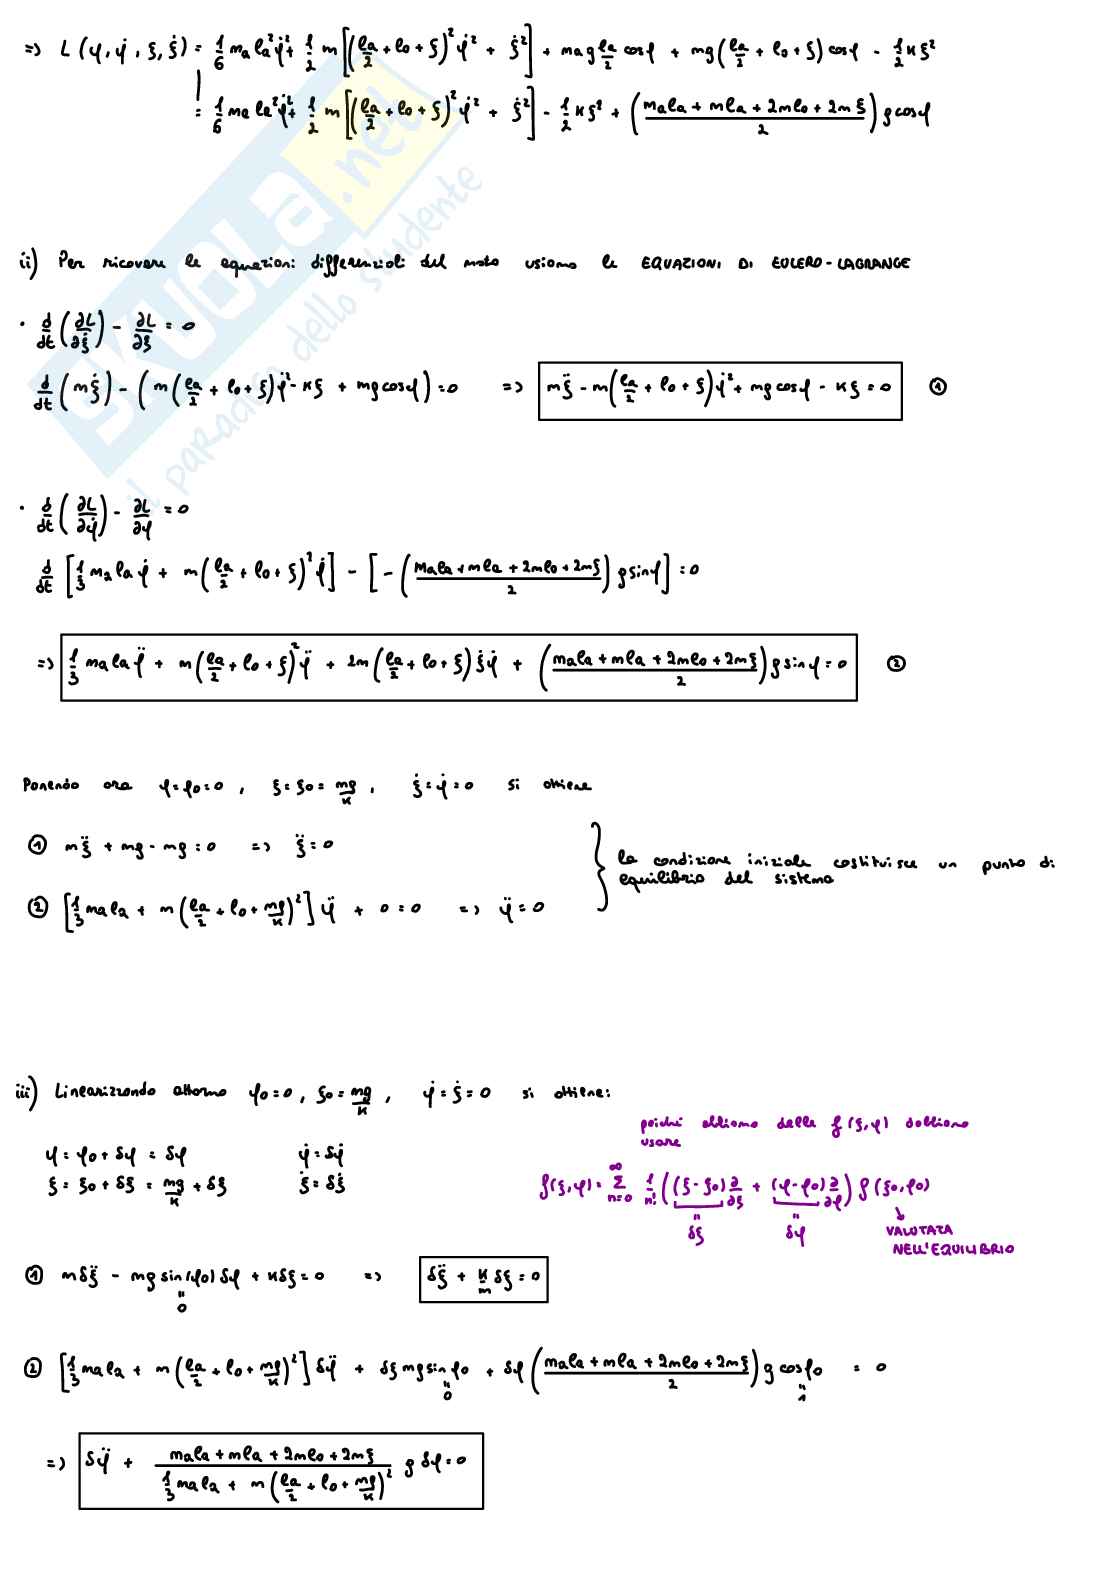 => L(φ, φ̇, ξ, ξ̇) = 1/6 mₐ lₐ² φ̇² + 1/2 m[(lₐ/2 + l₀ + ξ)² φ̇² + ξ̇²] + mₐ g lₐ/2 cosφ + mg(lₐ/2 + l₀ + ξ) cosφ - 1/2 Kξ²
= 1/6 mₐ lₐ² φ̇² + 1/2 m[(lₐ/2 + l₀ + ξ)² φ̇² + ξ̇²] - 1/2 Kξ² + ((mₐlₐ + mlₐ + 2ml₀ + 2mξ)/2) g cosφ
ii) Per ricavare le equazioni differenziali del moto usiamo le EQUAZIONI DI EULERO-LAGRANGE
· d/dt (∂L/∂ξ̇) - ∂L/∂ξ = 0
d/dt (mξ̇) - (m(lₐ/2 + l₀ + ξ)φ̇² - Kξ + mg cosφ) = 0 => mξ̈ - m(lₐ/2 + l₀ + ξ)φ̇² + mg cosφ - Kξ = 0 ①
· d/dt (∂L/∂φ̇) - ∂L/∂φ = 0
d/dt [1/3 mₐ lₐ φ̇ + m(lₐ/2 + l₀ + ξ)² φ̇] - [-((mₐlₐ + mlₐ + 2ml₀ + 2mξ)/2) g sinφ] = 0
=> 1/3 mₐ lₐ φ̈ + m(lₐ/2 + l₀ + ξ)² φ̈ + 2m(lₐ/2 + l₀ + ξ) ξ̇ φ̇ + ((mₐlₐ + mlₐ + 2ml₀ + 2mξ)/2) g sinφ = 0 ②
Ponendo ora φ = φ₀ = 0, ξ = ξ₀ = mg/K, ξ̇ = φ̇ = 0 si ottiene
① mξ̈ + mg - mg = 0 => ξ̈ = 0
② [1/3 mₐ lₐ + m(lₐ/2 + l₀ + mg/K)²] φ̈ + 0 = 0 => φ̈ = 0
la condizione iniziale costituisce un punto di
equilibrio del sistema
iii) Linearizzando attorno φ₀ = 0, ξ₀ = mg/K, φ̇ = ξ̇ = 0 si ottiene:
poiché abbiamo delle f(ξ,φ) dobbiamo
usare
φ = φ₀ + δφ = δφ φ̇ = δφ̇
ξ = ξ₀ + δξ = mg/K + δξ ξ̇ = δξ̇
f(ξ,φ) = ∑ n=0 ∞ 1/n! ((ξ-ξ₀) ∂/∂ξ + (φ-φ₀) ∂/∂φ) f(ξ₀,φ₀)
" δξ " δφ
VALUTATA
NELL'EQUILIBRIO
① mδξ̈ - mg sin(φ₀) δφ + Kδξ = 0 => δξ̈ + K/m δξ = 0
" 0
② [1/3 mₐ lₐ + m(lₐ/2 + l₀ + mg/K)²] δφ̈ + δξ mg sinφ₀ + δφ ((mₐlₐ + mlₐ + 2ml₀ + 2mξ)/2) g cosφ₀ = 0
" 0 " 1
=> δφ̈ + (mₐlₐ + mlₐ + 2ml₀ + 2mξ)/(1/3 mₐ lₐ + m(lₐ/2 + l₀ + mg/K)²) g δφ = 0
SKUOLA.net
il paradiso dello studente